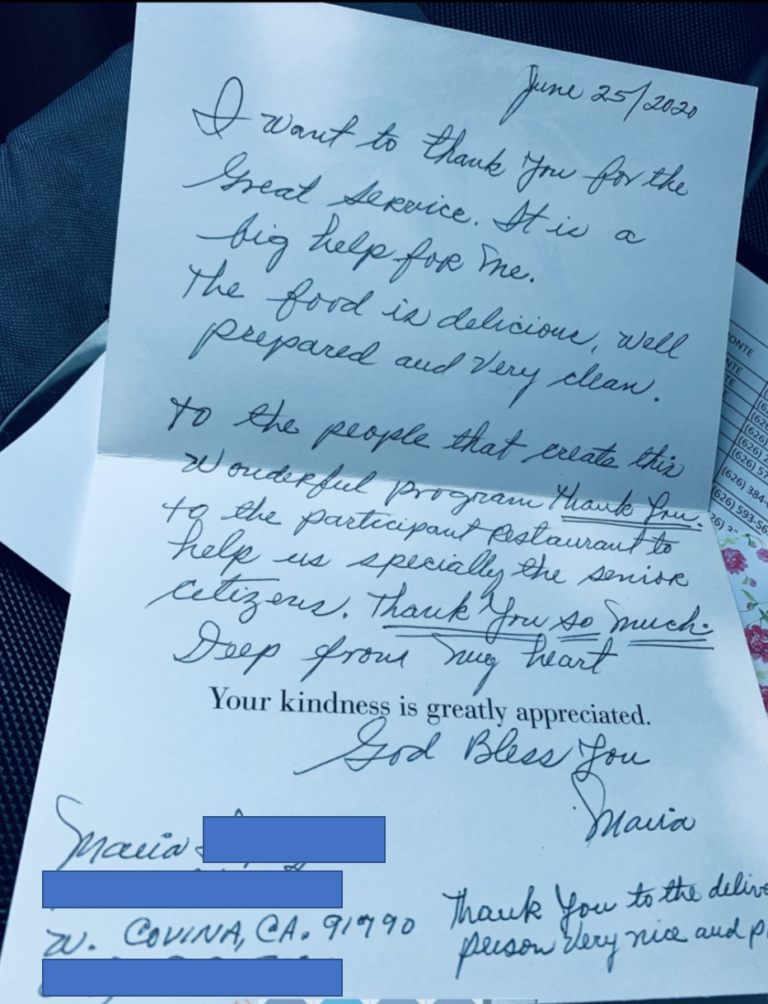 June 25/2020
I want to thank You for the
Great service. It is a
big help for me.
The food is delicious, well
prepared and very clean.
to the people that create this
wonderful program thank You.
to the participant restaurant to
help us specially the senior
citizens. Thank You so much.
Deep from my heart
Your kindness is greatly appreciated.
God Bless You
Maria
Maria
W. COVINA, CA. 91790
Thank You to the delive
person very nice and p
ONTE
NTE
TE
(626)
(626)
(626)
(626)
(626) 2
(626) 57
(626) 384-
(626) 593-56